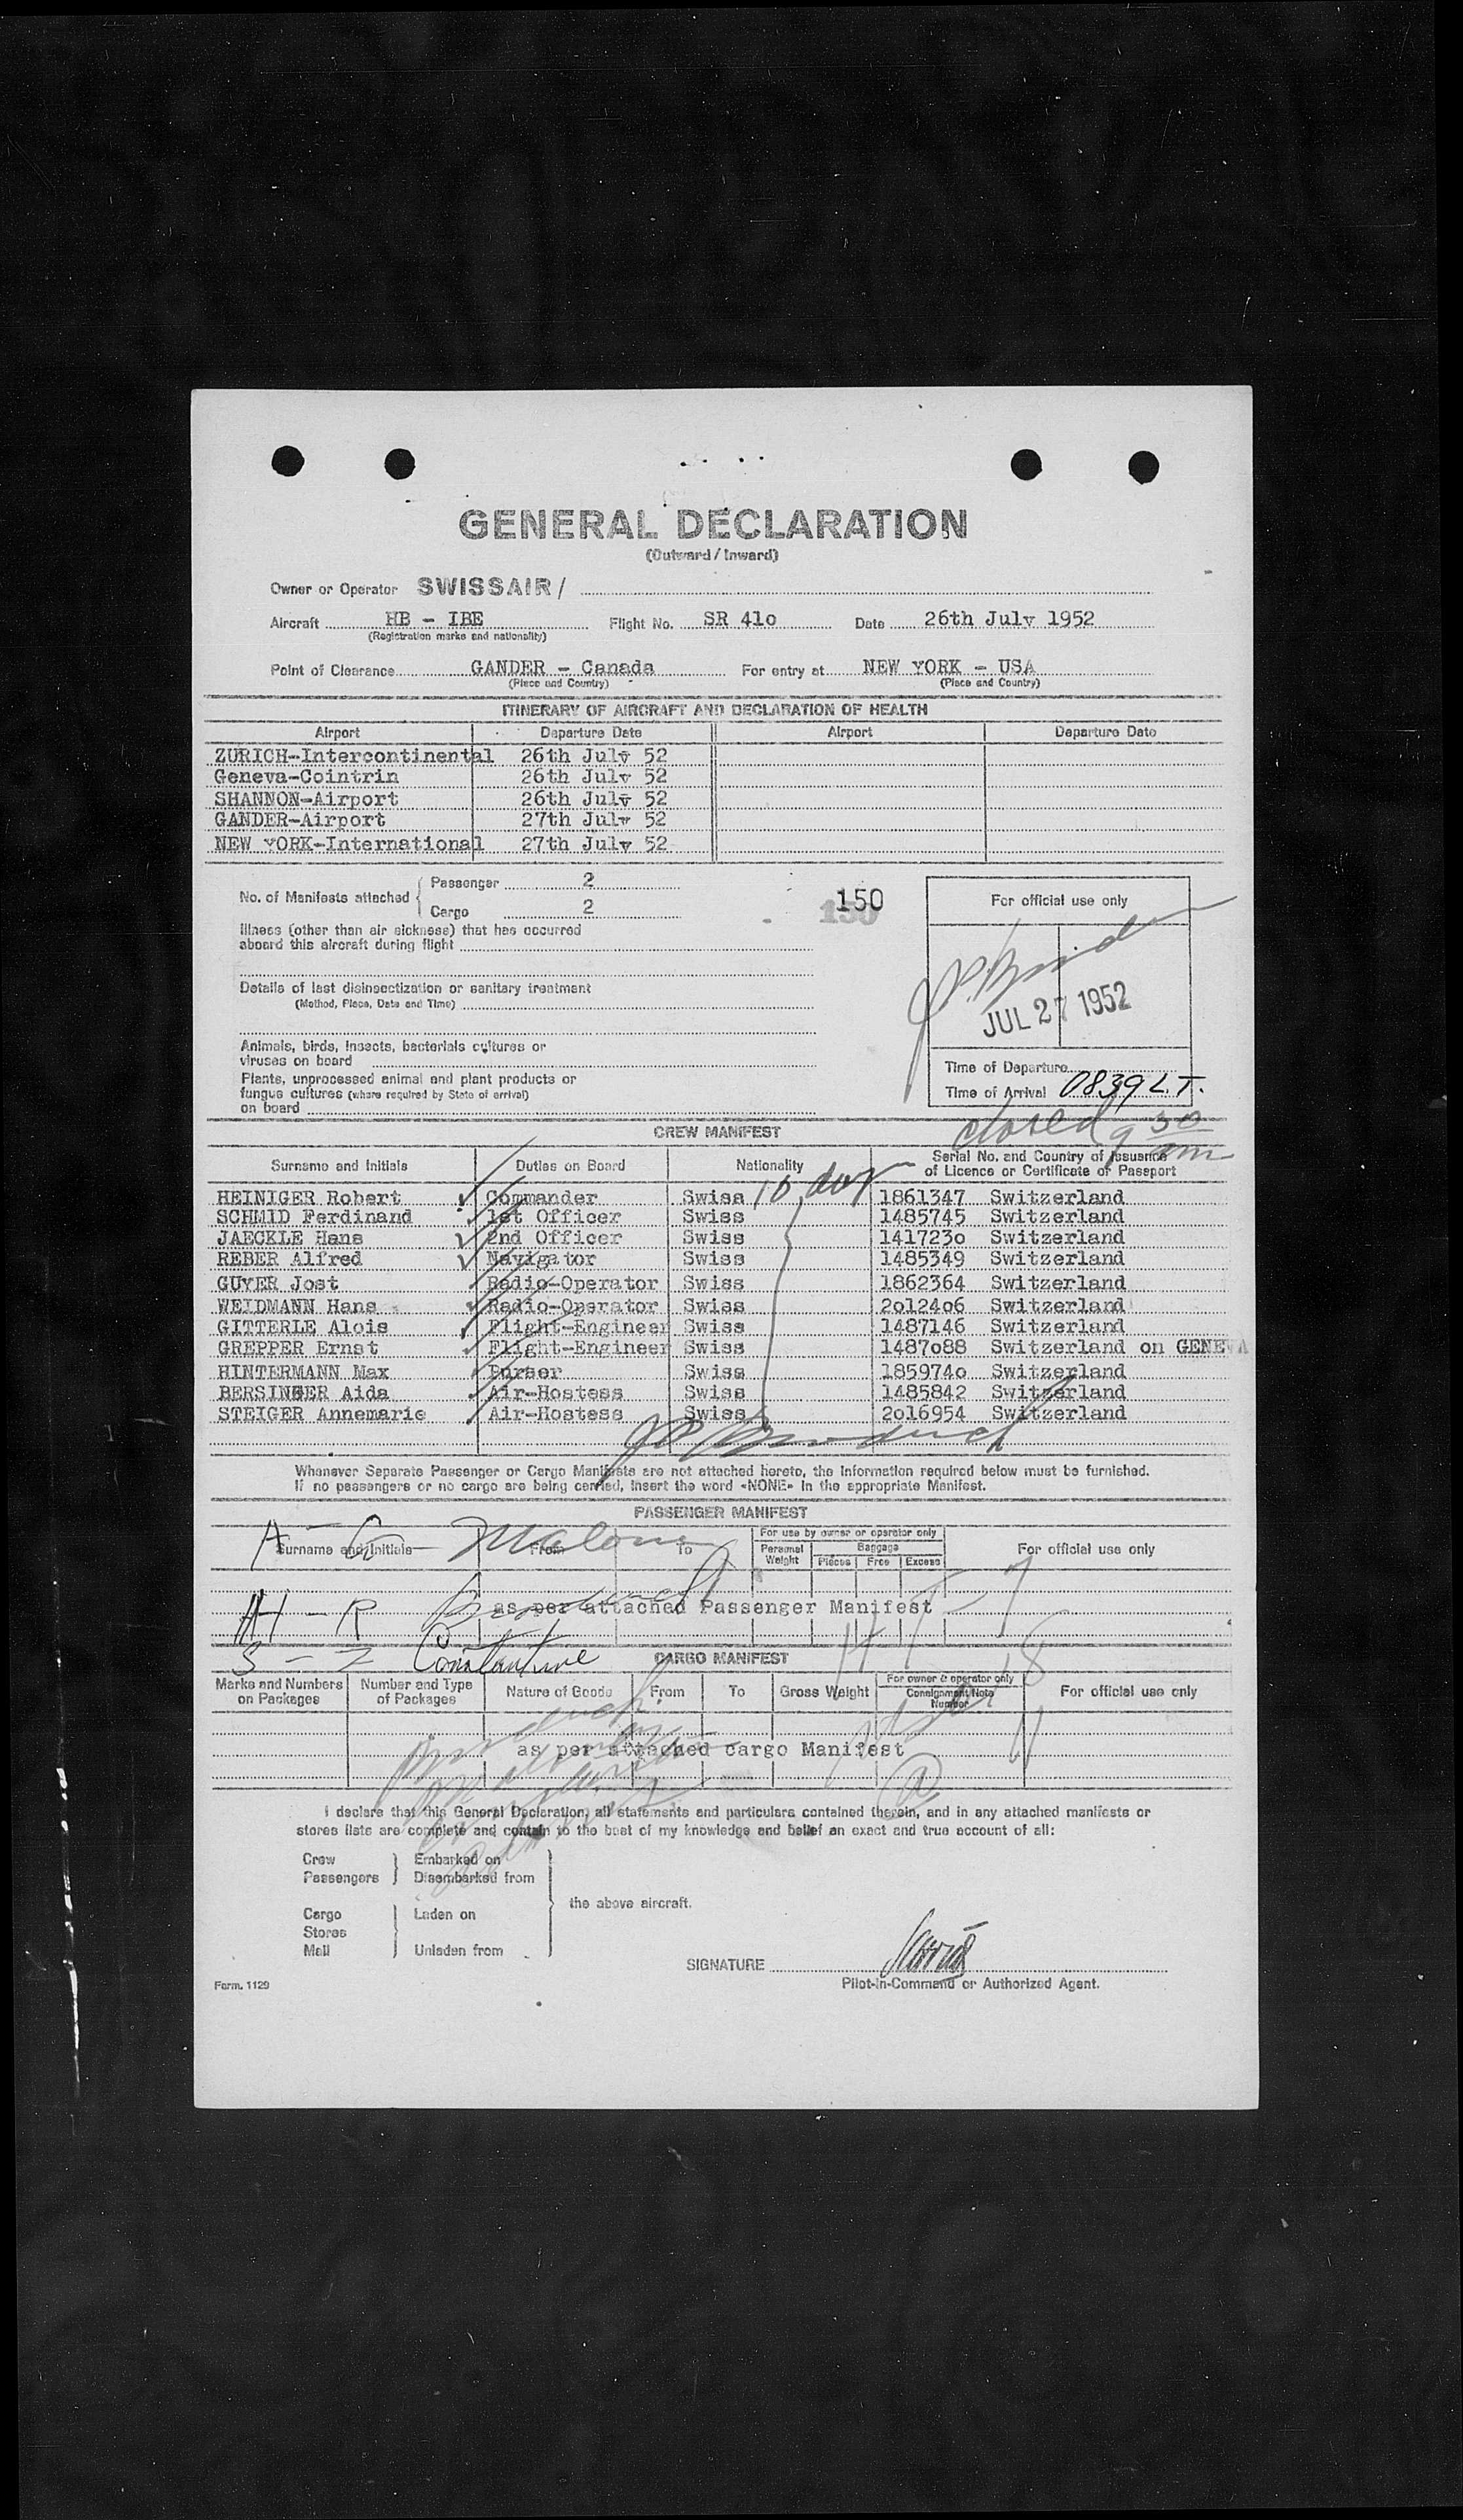 GENERAL DECLARATION
(Outward / Inward)
Owner or Operator SWISSAIR /
Aircraft HB - IBE Flight No. SR 41o Date 26th July 1952
(Registration marks and nationality)
Point of Clearance GANDER - Canada For entry at NEW YORK - USA
(Place and Country) (Place and Country)
ITINERARY OF AIRCRAFT AND DECLARATION OF HEALTH
Airport Departure Date Airport Departure Date
ZURICH-Intercontinental 26th July 52
Geneva-Cointrin 26th July 52
SHANNON-Airport 26th July 52
GANDER-Airport 27th July 52
NEW YORK-International 27th July 52
No. of Manifests attached
Passenger 2
Cargo 2
150
Illness (other than air sickness) that has occurred
aboard this aircraft during flight
Details of last disinsectization or sanitary treatment
(Method, Place, Date and Time)
Animals, birds, insects, bacterials cultures or
viruses on board
Plants, unprocessed animal and plant products or
fungus cultures (where required by State of arrival)
on board
For official use only
JUL 27 1952
Time of Departure
Time of Arrival 0839 L.T.
closed 9 30 am
CREW MANIFEST
Surname and Initials Duties on Board Nationality Serial No. and Country of Issuance
of Licence or Certificate or Passport
HEINIGER Robert Commander Swiss 1861347 Switzerland
SCHMID Ferdinand 1st Officer Swiss 1485745 Switzerland
JAECKLE Hans 2nd Officer Swiss 141723o Switzerland
REBER Alfred Navigator Swiss 1485349 Switzerland
GUYER Jost Radio-Operator Swiss 1862364 Switzerland
WEIDMANN Hans Radio-Operator Swiss 2o124o6 Switzerland
GITTERLE Alois Flight-Engineer Swiss 1487146 Switzerland
GREPPER Ernst Flight-Engineer Swiss 1487o88 Switzerland on GENEVA
HINTERMANN Max Purser Swiss 185974o Switzerland
BERSINGER Aida Air-Hostess Swiss 1485842 Switzerland
STEIGER Annemarie Air-Hostess Swiss 2o16954 Switzerland
Whenever Separate Passenger or Cargo Manifests are not attached hereto, the information required below must be furnished.
If no passengers or no cargo are being carried, insert the word «NONE» in the appropriate Manifest.
PASSENGER MANIFEST
A - G Malone
Surname and Initials From To
For use by owner or operator only
Personal Weight Baggage Pieces Free Excess
For official use only
as per attached Passenger Manifest
H - R
S - Z Constantine
CARGO MANIFEST
Marks and Numbers on Packages Number and Type of Packages Nature of Goods From To Gross Weight
For owner & operator only
Consignment Note Number
For official use only
as per attached cargo Manifest
I declare that this General Declaration, all statements and particulars contained therein, and in any attached manifests or
stores lists are complete and contain to the best of my knowledge and belief an exact and true account of all:
Crew Embarked on
Passengers Disembarked from
the above aircraft.
Cargo Laden on
Stores
Mail Unladen from
SIGNATURE
Pilot-in-Command or Authorized Agent.
Form. 1129